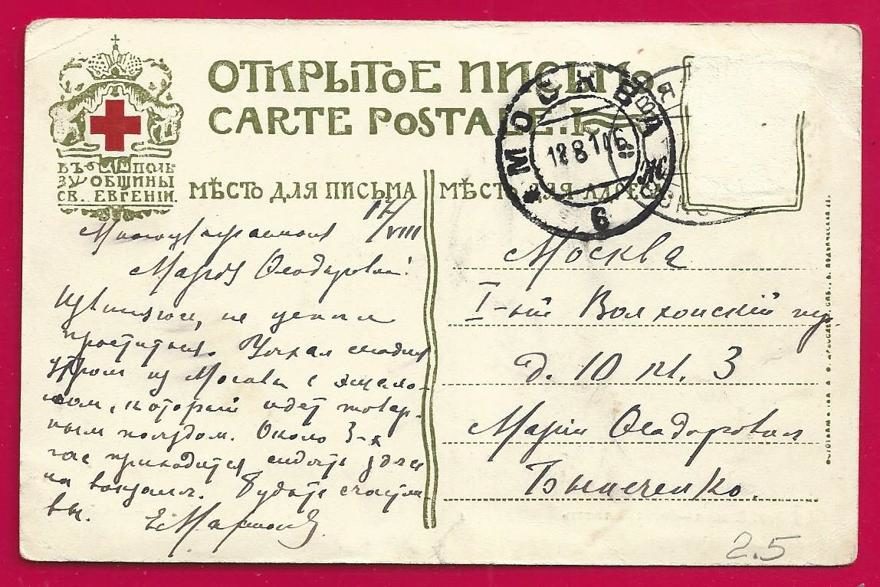 ОТКРЫТОЕ ПИСЬМО
CARTE POSTALE.
ВЪ ПОЛЬ
ЗУ ОБЩИНЫ
СВ. ЕВГЕНІИ.
МѢСТО ДЛЯ ПИСЬМА
МѢСТО ДЛЯ
МОСКВА
6
17/VIII
Многоуважаемая
Марія Ѳеодоровна!
не успѣлъ
проститься. Уѣхал сегодня
утром из Москвы с эшело-
ном, который идет товар-
ным поѣздом. Около 3-х
час приходится сидѣть здѣсь
на вокзалѣ. Будьте счастли
вы.
Москва
I-ый пер.
д. 10 кв. 3
Марія Ѳеодоровна
2.5